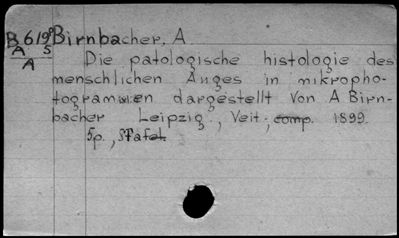 B 619 Birnbacher, A
A 5
A Die patologische histologie des
menschlichen Auges in mikropho-
togrammen dargestellt von A Birn-
bacher Leipzig, Veit, comp. 1899.
5p.,